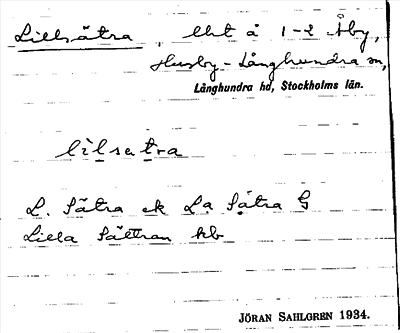 Lillsätra, lht å 1-2 Åby,
Husby-Långhundra sn,
Långhundra hd, Stockholms län.
lilsatra
L. Sätra ek La Sätra G
Lilla Sättran kb
JÖRAN SAHLGREN 1934.